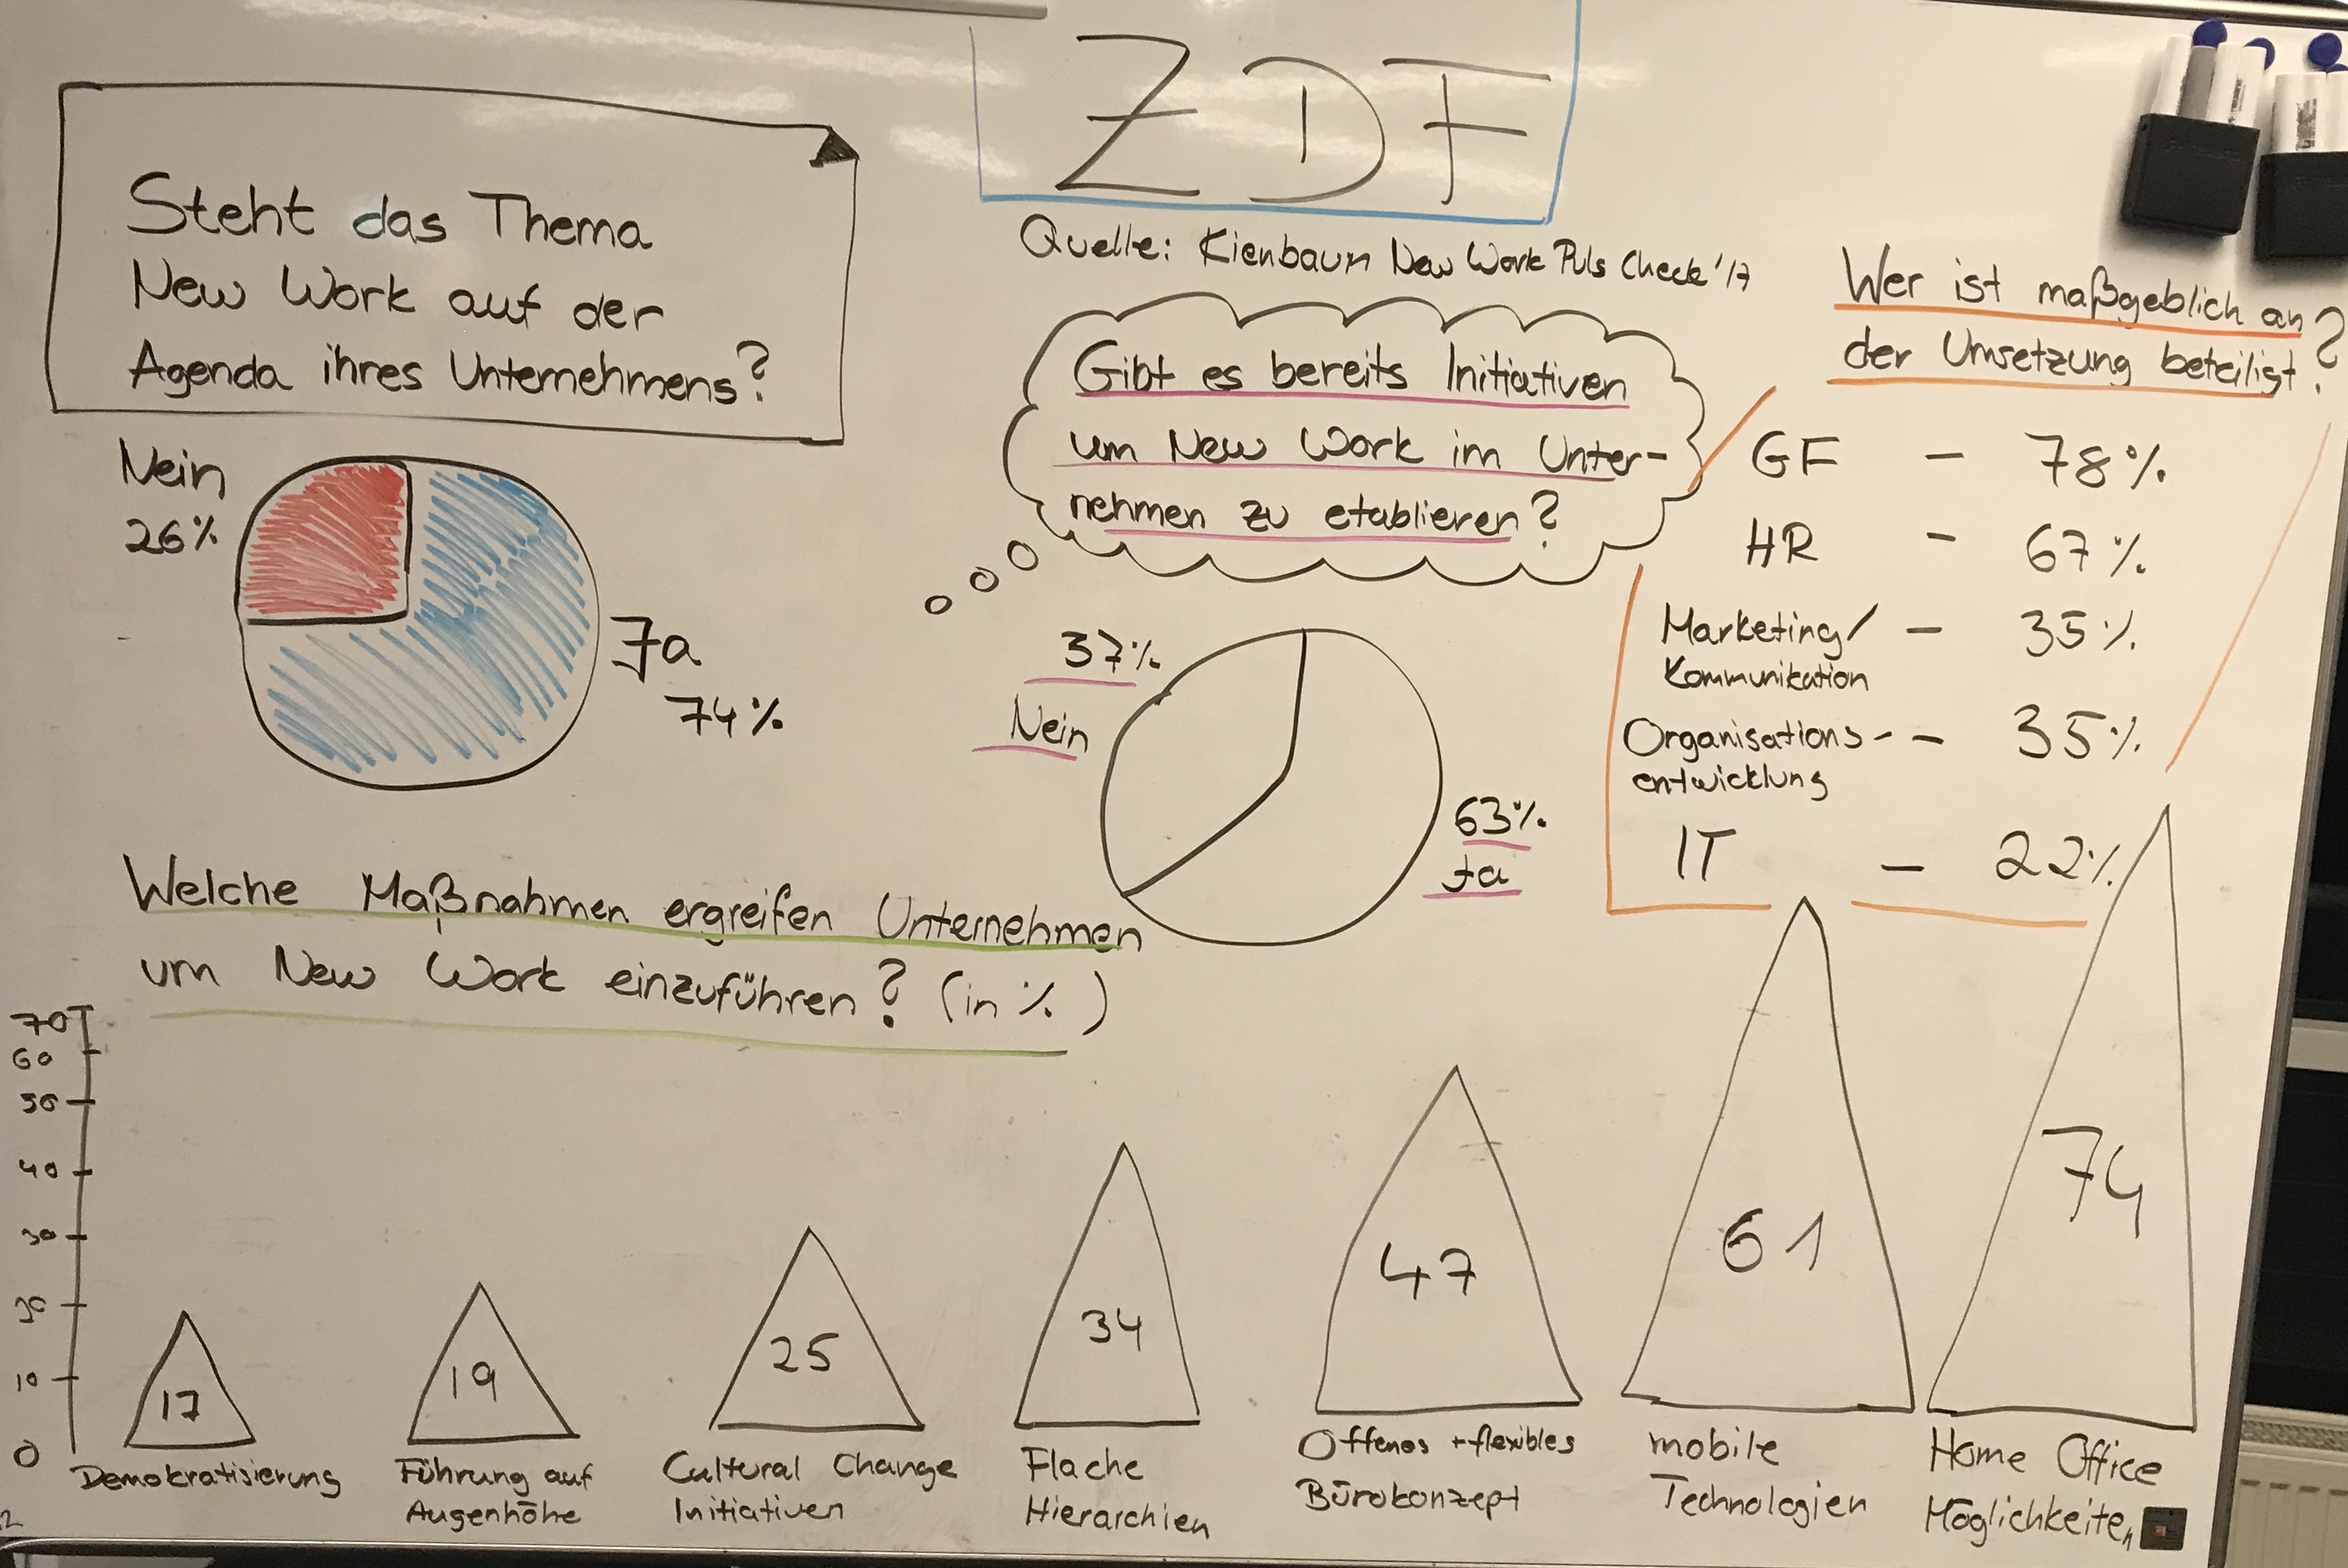 ZDF
Quelle: Kienbaum New Work Puls Check '17
Steht das Thema
New Work auf der
Agenda ihres Unternehmens?
Nein
26%
Ja
74%
Gibt es bereits Initiativen
um New Work im Unter-
nehmen zu etablieren?
37%
Nein
63%
Ja
Wer ist maßgeblich an
der Umsetzung beteiligt?
GF - 78%
HR - 67%
Marketing/ - 35%
Kommunikation
Organisations- - 35%
entwicklung
IT - 22%
Welche Maßnahmen ergreifen Unternehmen
um New Work einzuführen? (in %)
70
60
50
40
30
20
10
0
17
19
25
34
47
61
74
Demokratisierung
Führung auf
Augenhöhe
Cultural Change
Initiativen
Flache
Hierarchien
Offenes + flexibles
Bürokonzept
mobile
Technologien
Home Office
Möglichkeiten